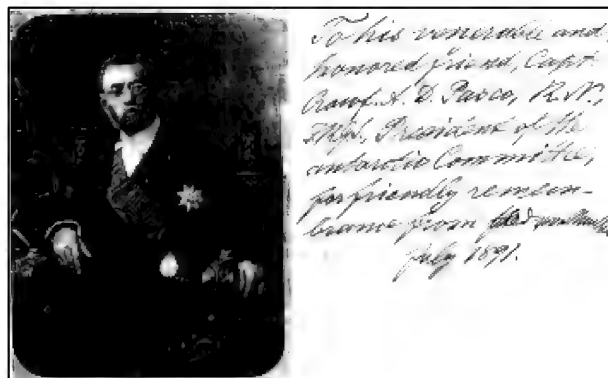 To his venerable and
honored friend, Capt.
Crawf. A. D. Pasco, R.N.,
President of the
antarctic Committee,
for friendly remem-
brance from
July 1891.